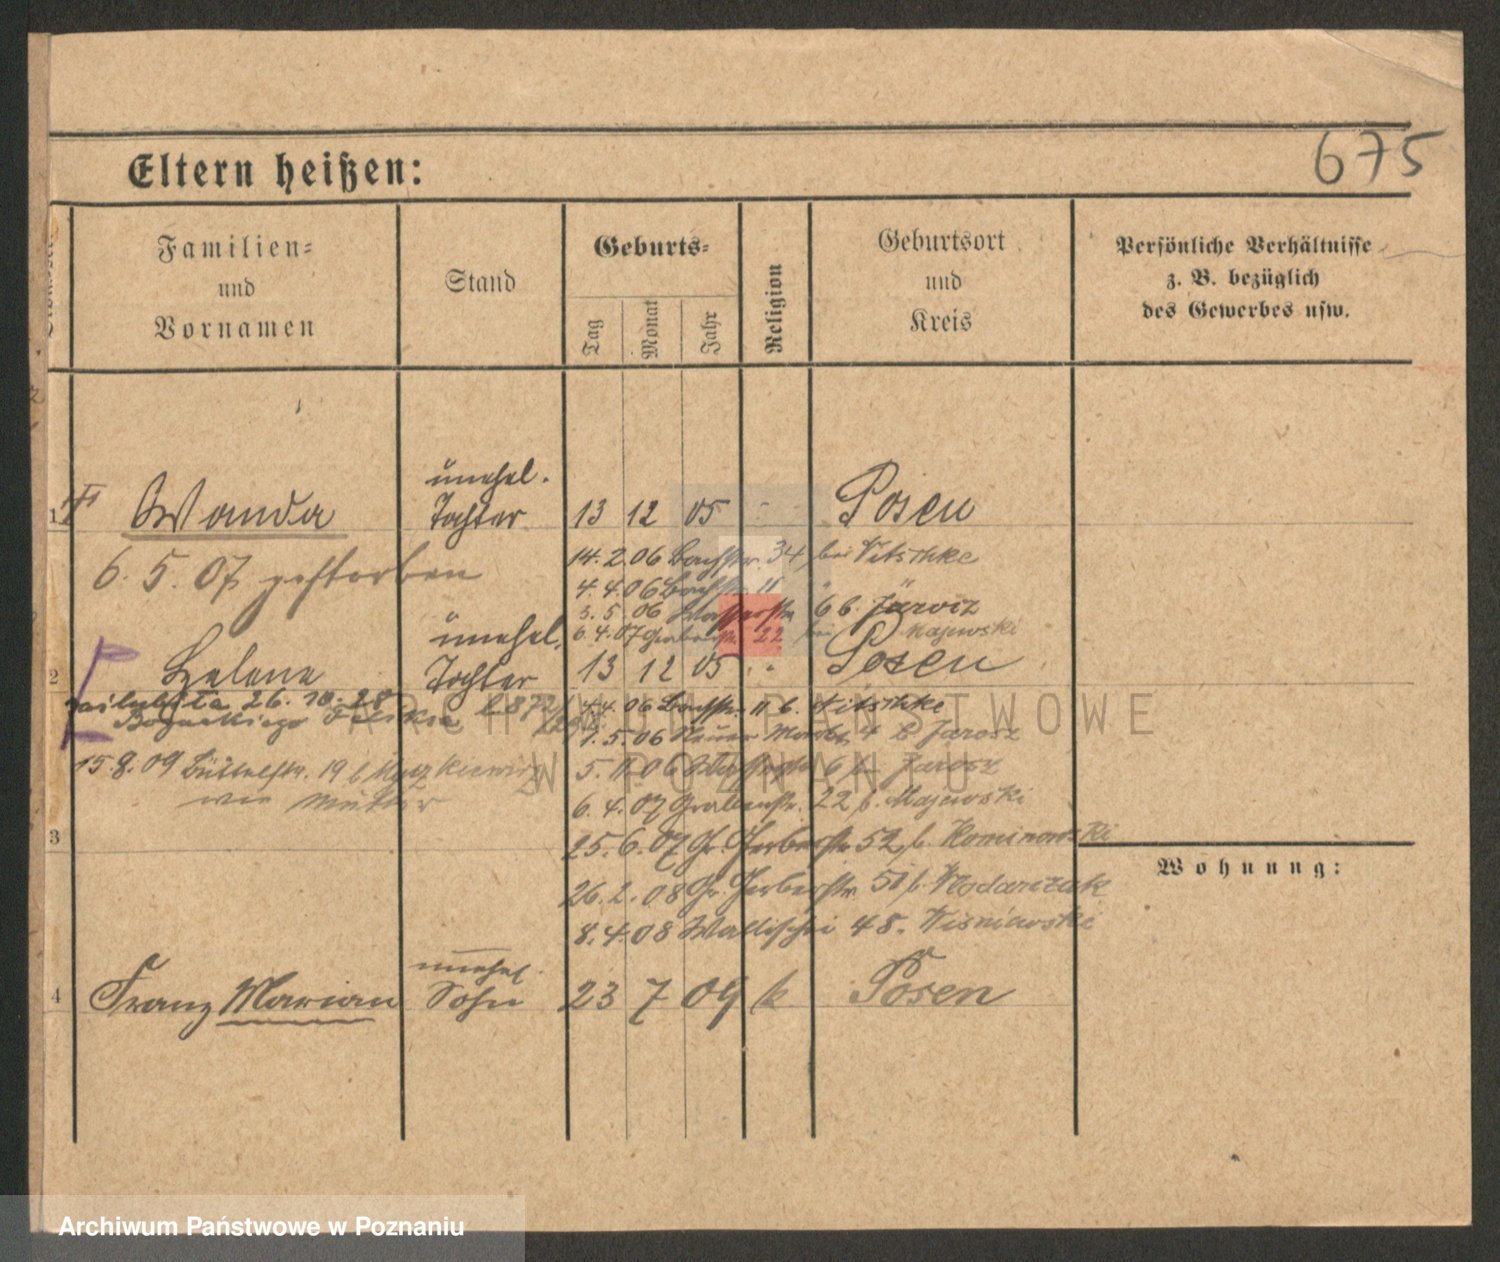 675
Eltern heißen:
Familien-
und
Vornamen
Stand
Geburts-
Tag
Monat
Jahr
Religion
Geburtsort
und
Kreis
Persönliche Verhältnisse
z. B. bezüglich
des Gewerbes usw.
unehel.
1 Wanda Tochter 13 12 05 Posen
6. 5. 07 gestorben
14. 2. 06 Bachstr. 34 bei Nitschke
4. 4. 06 Bachstr. 11
3. 5. 06 Wasserstr. 6 b. Jarosz
6. 4. 07 Grabenstr. 22 bei Majewski
unehel.
2 Helene Tochter 13 12 05 Posen
zaślubiła 26. 10. 28
Feliksa
4. 4. 06 Bachstr. 11 b. Nitschke
1. 5. 06 Neuer Markt 4 b. Jarosz
15. 8. 09 Büttelstr. 19 b.
wie Mutter
5. 11. 06 Wasserstr. 6 b. Jarosz
6. 4. 07 Grabenstr. 22 b. Majewski
3
25. 6. 07 Gr. Gerberstr. 52 b. Kominowski
26. 2. 08 Gr. Gerberstr. 51 b. Wlodarczak
8. 4. 08 Wallischei 48. Wisniewski
Wohnung:
unehel.
4 Franz Marian Sohn 23 7 09 k Posen
ARCHIWUM PAŃSTWOWE
W POZNANIU
Archiwum Państwowe w Poznaniu